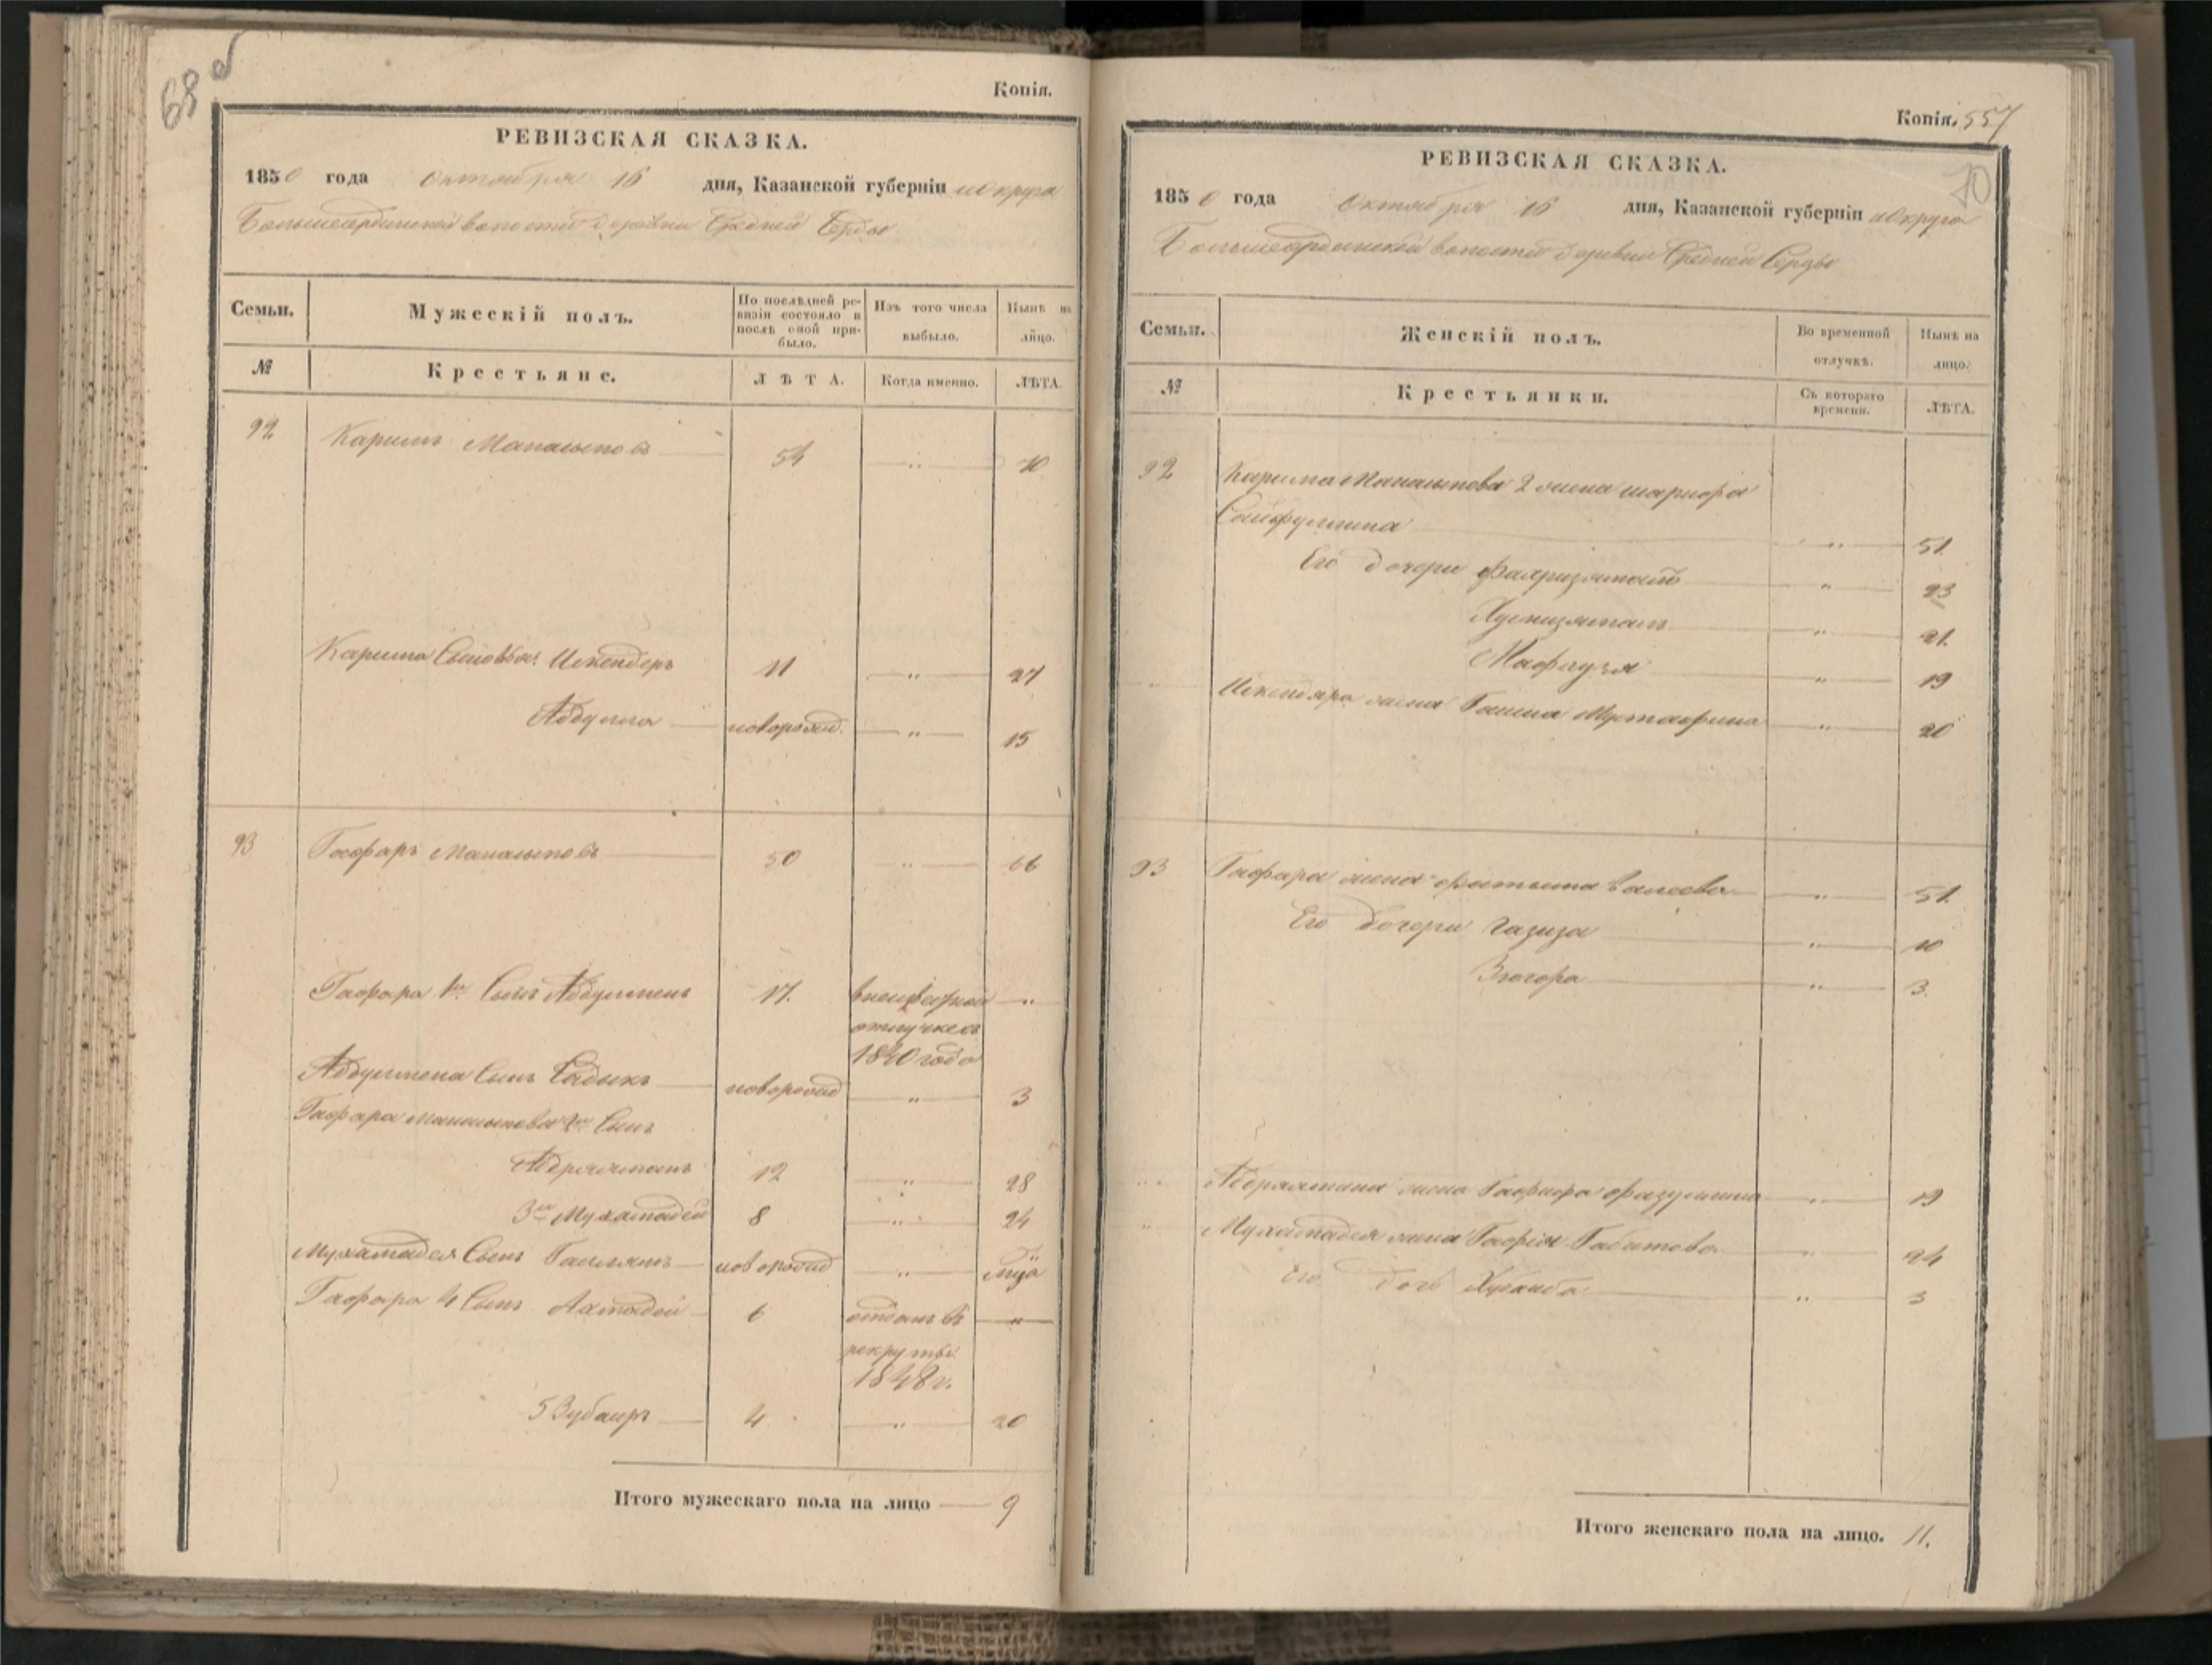 68 об
Копія.
РЕВИЗСКАЯ СКАЗКА.
1850 года октября 16 дня, Казанской губерніи и округа
Большесердинской волости деревни Средней Серды
Семьи.
Мужескій полъ.
По послѣдней ре-
визіи состояло и
послѣ оной при-
было.
Изъ того числа
выбыло.
Нынѣ на
лицо.
№
Крестьяне.
ЛѢТА.
Когда именно.
ЛѢТА.
92 Каримъ Манасыповъ 54 " 70
Карима Сыновья: Искендеръ 11 " 27
Абдулла новорожд. " 15
93 Гафаръ Манасыповъ 50 " 66
Гафара 1й Сынъ Абдулменъ 17. "
отлучкесъ
1840 года
Абдулмена Сынъ Садыкъ новорожд " 3
Гафара Манасыпова 2й Сынъ
Абдрахманъ 12 " 28
3й Мухаматдей 8 " 24
Мухаматдея Сынъ новорожд "
Гафара 4 Сынъ Ахмадей 6 отданъ въ "
рекруты
1848 г.
5 Зубаиръ 4 " 20
Итого мужескаго пола на лицо 9
Копія. 557
70
РЕВИЗСКАЯ СКАЗКА.
1850 года октября 16 дня, Казанской губерніи и округа
Большесердинской волости деревни Средней Серды
Семьи.
Женскій полъ.
Во временной
отлучкѣ.
Нынѣ на
лицо.
№
Крестьянки.
Съ котораго
времени.
ЛѢТА.
92 Карима Манасыпова 2 жена шарифа
Сайфуллина " 51
Его дочери " 23
Хуснизямалъ " 21
Мафтуха " 19
" Искендяра жена Мустафина " 20
93 Гафара жена фатыма Валеева " 51
Его дочери Газиза " 10
Зюгора " 3.
" Абдрахмана жена Гафифа файзуллина " 19
" Мухаматдея жена Гафія Габитова " 24
Его дочь " 3
Итого женскаго пола на лицо. 11.